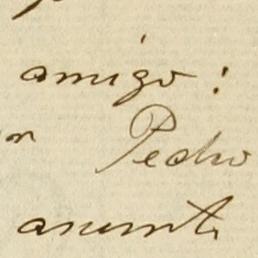 amigo:
Pedro
asunto